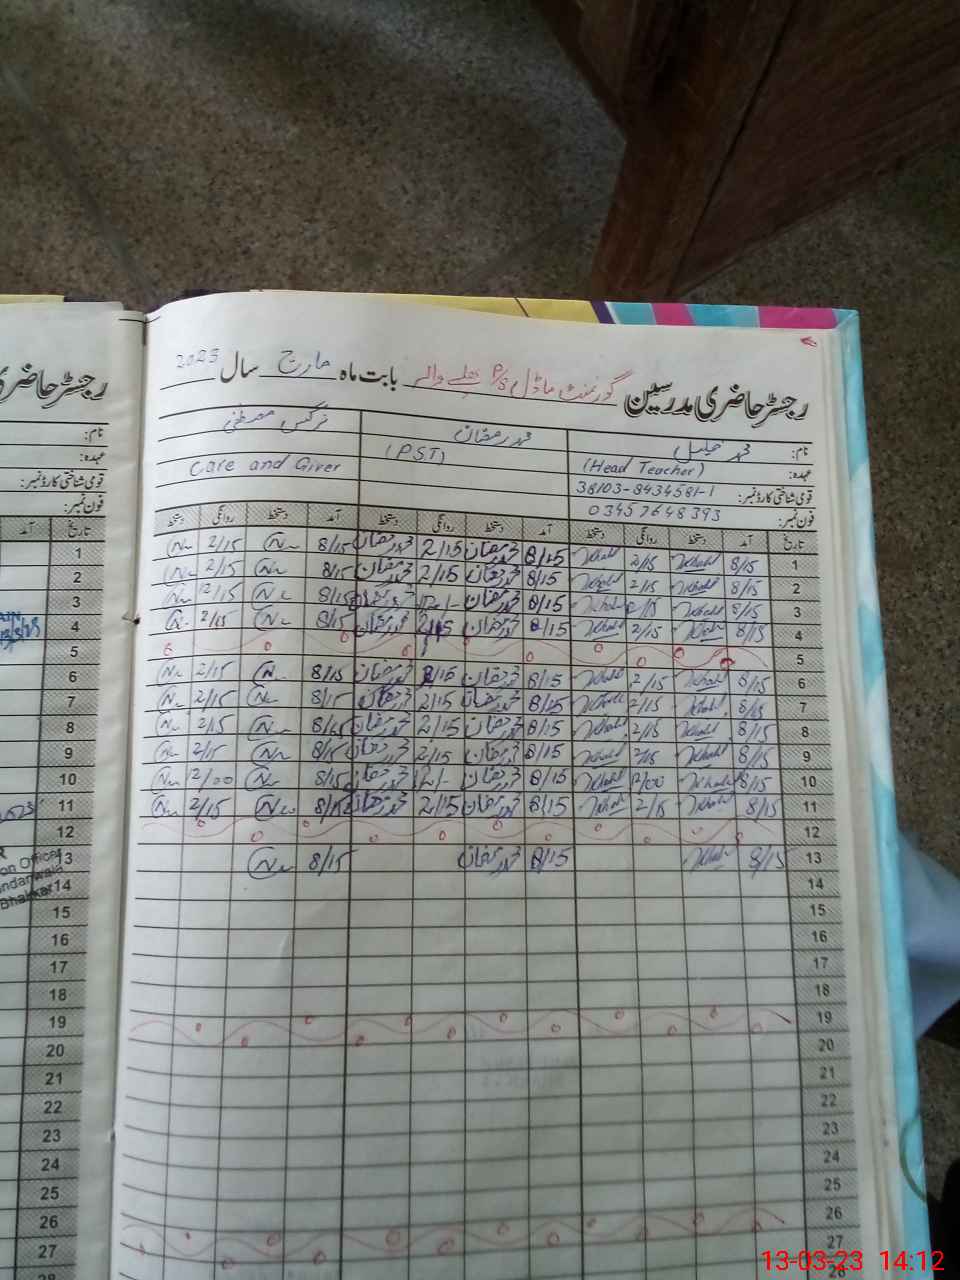 رجسٹر حاضری مدرسین گورنمنٹ ماڈل P/S بھلے والہ بابت ماہ مارچ سال 2023
نام: محمد جلیل محمد رمضان نرگس مصطفیٰ
عہدہ: (Head Teacher) (PST) Care and Giver
قومی شناختی کارڈ نمبر: 38103-8434581-1
فون نمبر: 03457648393
تاریخ آمد دستخط روانگی دستخط آمد دستخط روانگی دستخط آمد دستخط روانگی دستخط
1 8/15 2/15 8/15 محمد رمضان 2/15 محمد رمضان 8/15 2/15
2 8/15 2/15 8/15 محمد رمضان 2/15 محمد رمضان 8/15 2/15
3 8/15 8/15 محمد رمضان محمد رمضان 8/15 12/15
4 8/15 2/15 8/15 محمد رمضان 2/15 محمد رمضان 8/15 2/15
5
6 8/15 2/15 8/15 محمد رمضان 2/15 محمد رمضان 8/15 2/15
7 8/15 2/15 8/15 محمد رمضان 2/15 محمد رمضان 8/15 2/15
8 8/15 2/15 8/15 محمد رمضان 2/15 محمد رمضان 8/15 2/15
9 8/15 2/15 8/15 محمد رمضان 2/15 محمد رمضان 8/15 2/15
10 8/15 12/00 8/15 محمد رمضان محمد رمضان 8/15 12/00
11 8/15 2/15 8/15 محمد رمضان 2/15 محمد رمضان 8/15 2/15
12
13 8/15 8/15 محمد رمضان 8/15
14
15
16
17
18
19
20
21
22
23
24
25
26
27
28
رجسٹر حاضری
نام:
عہدہ:
قومی شناختی کارڈ نمبر:
فون نمبر:
تاریخ آمد
1
2
3
4
5
6
7
8
9
10
11
12
13
14
15
16
17
18
19
20
21
22
23
24
25
26
27
28
on Officer
Bhakkar
13-03-23 14:12